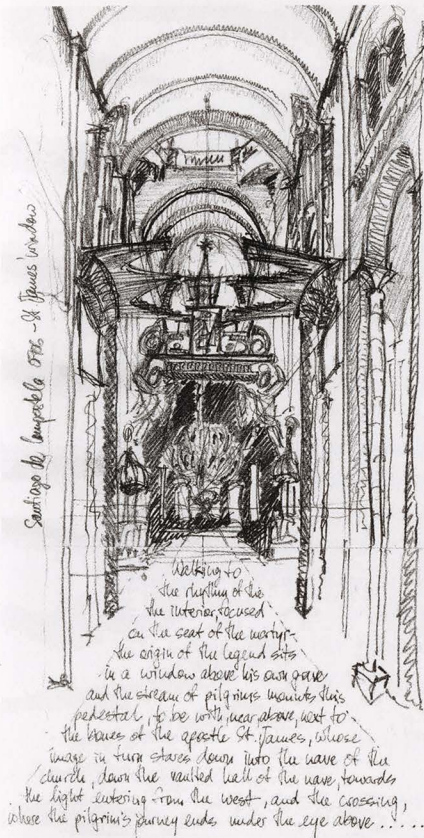 Santiago de Compostela 0705 - St James' window
Walking to
the rhythm of the
the interior, focused
on the seat of the martyr-
the origin of the legend sits
in a window above his own grave
and the stream of pilgrims mounts this
pedestal, to be with, near, above, next to
the bones of the apostle St. James, whose
image in turn stares down into the nave of the
church, down the vaulted hall of the nave, towards
the light entering from the west, and the crossing,
where the pilgrim's journey ends under the eye above......